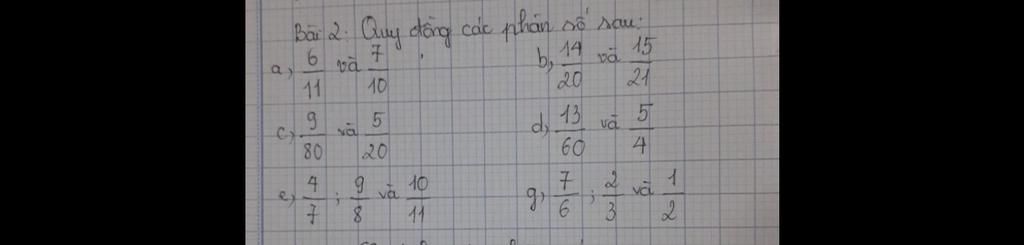 Bài 2: Quy đồng các phân số sau:
a, 6/11 và 7/10 b, 14/20 và 15/21
c, 9/80 và 5/20 d, 13/60 và 5/4
e, 4/7 ; 9/8 và 10/11 g, 7/6 ; 2/3 và 1/2